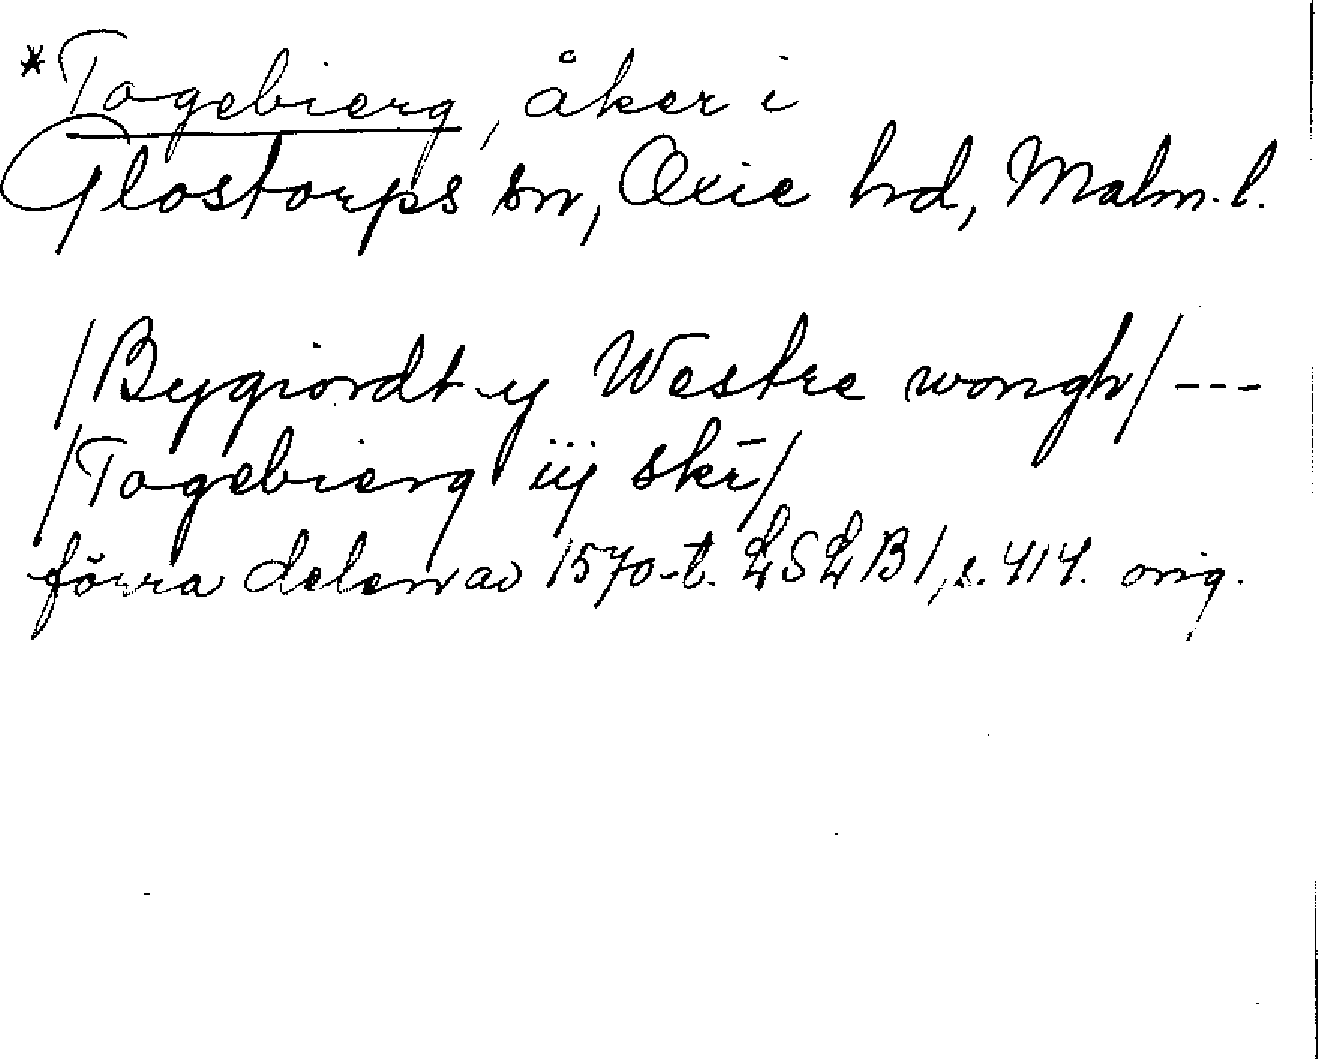 *Tagebierg, åker i
Glostorps sn, Oxie hd, Malm. l.
/Bygiordt y Westre wongh/ ---
/Tagebierg iij skr̄/
förra delen av 1570-t. LSLB1, s. 414. orig.